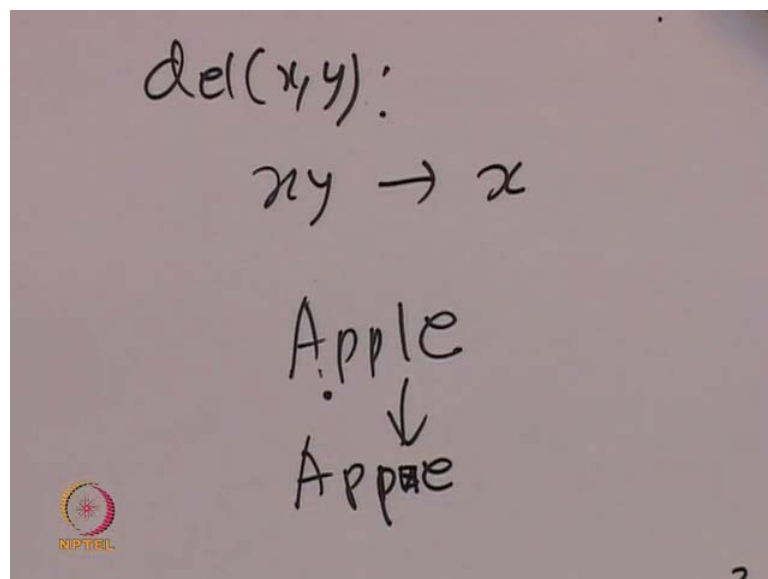 del(x,y):
xy → x
Apple
↓
Appe
NPTEL